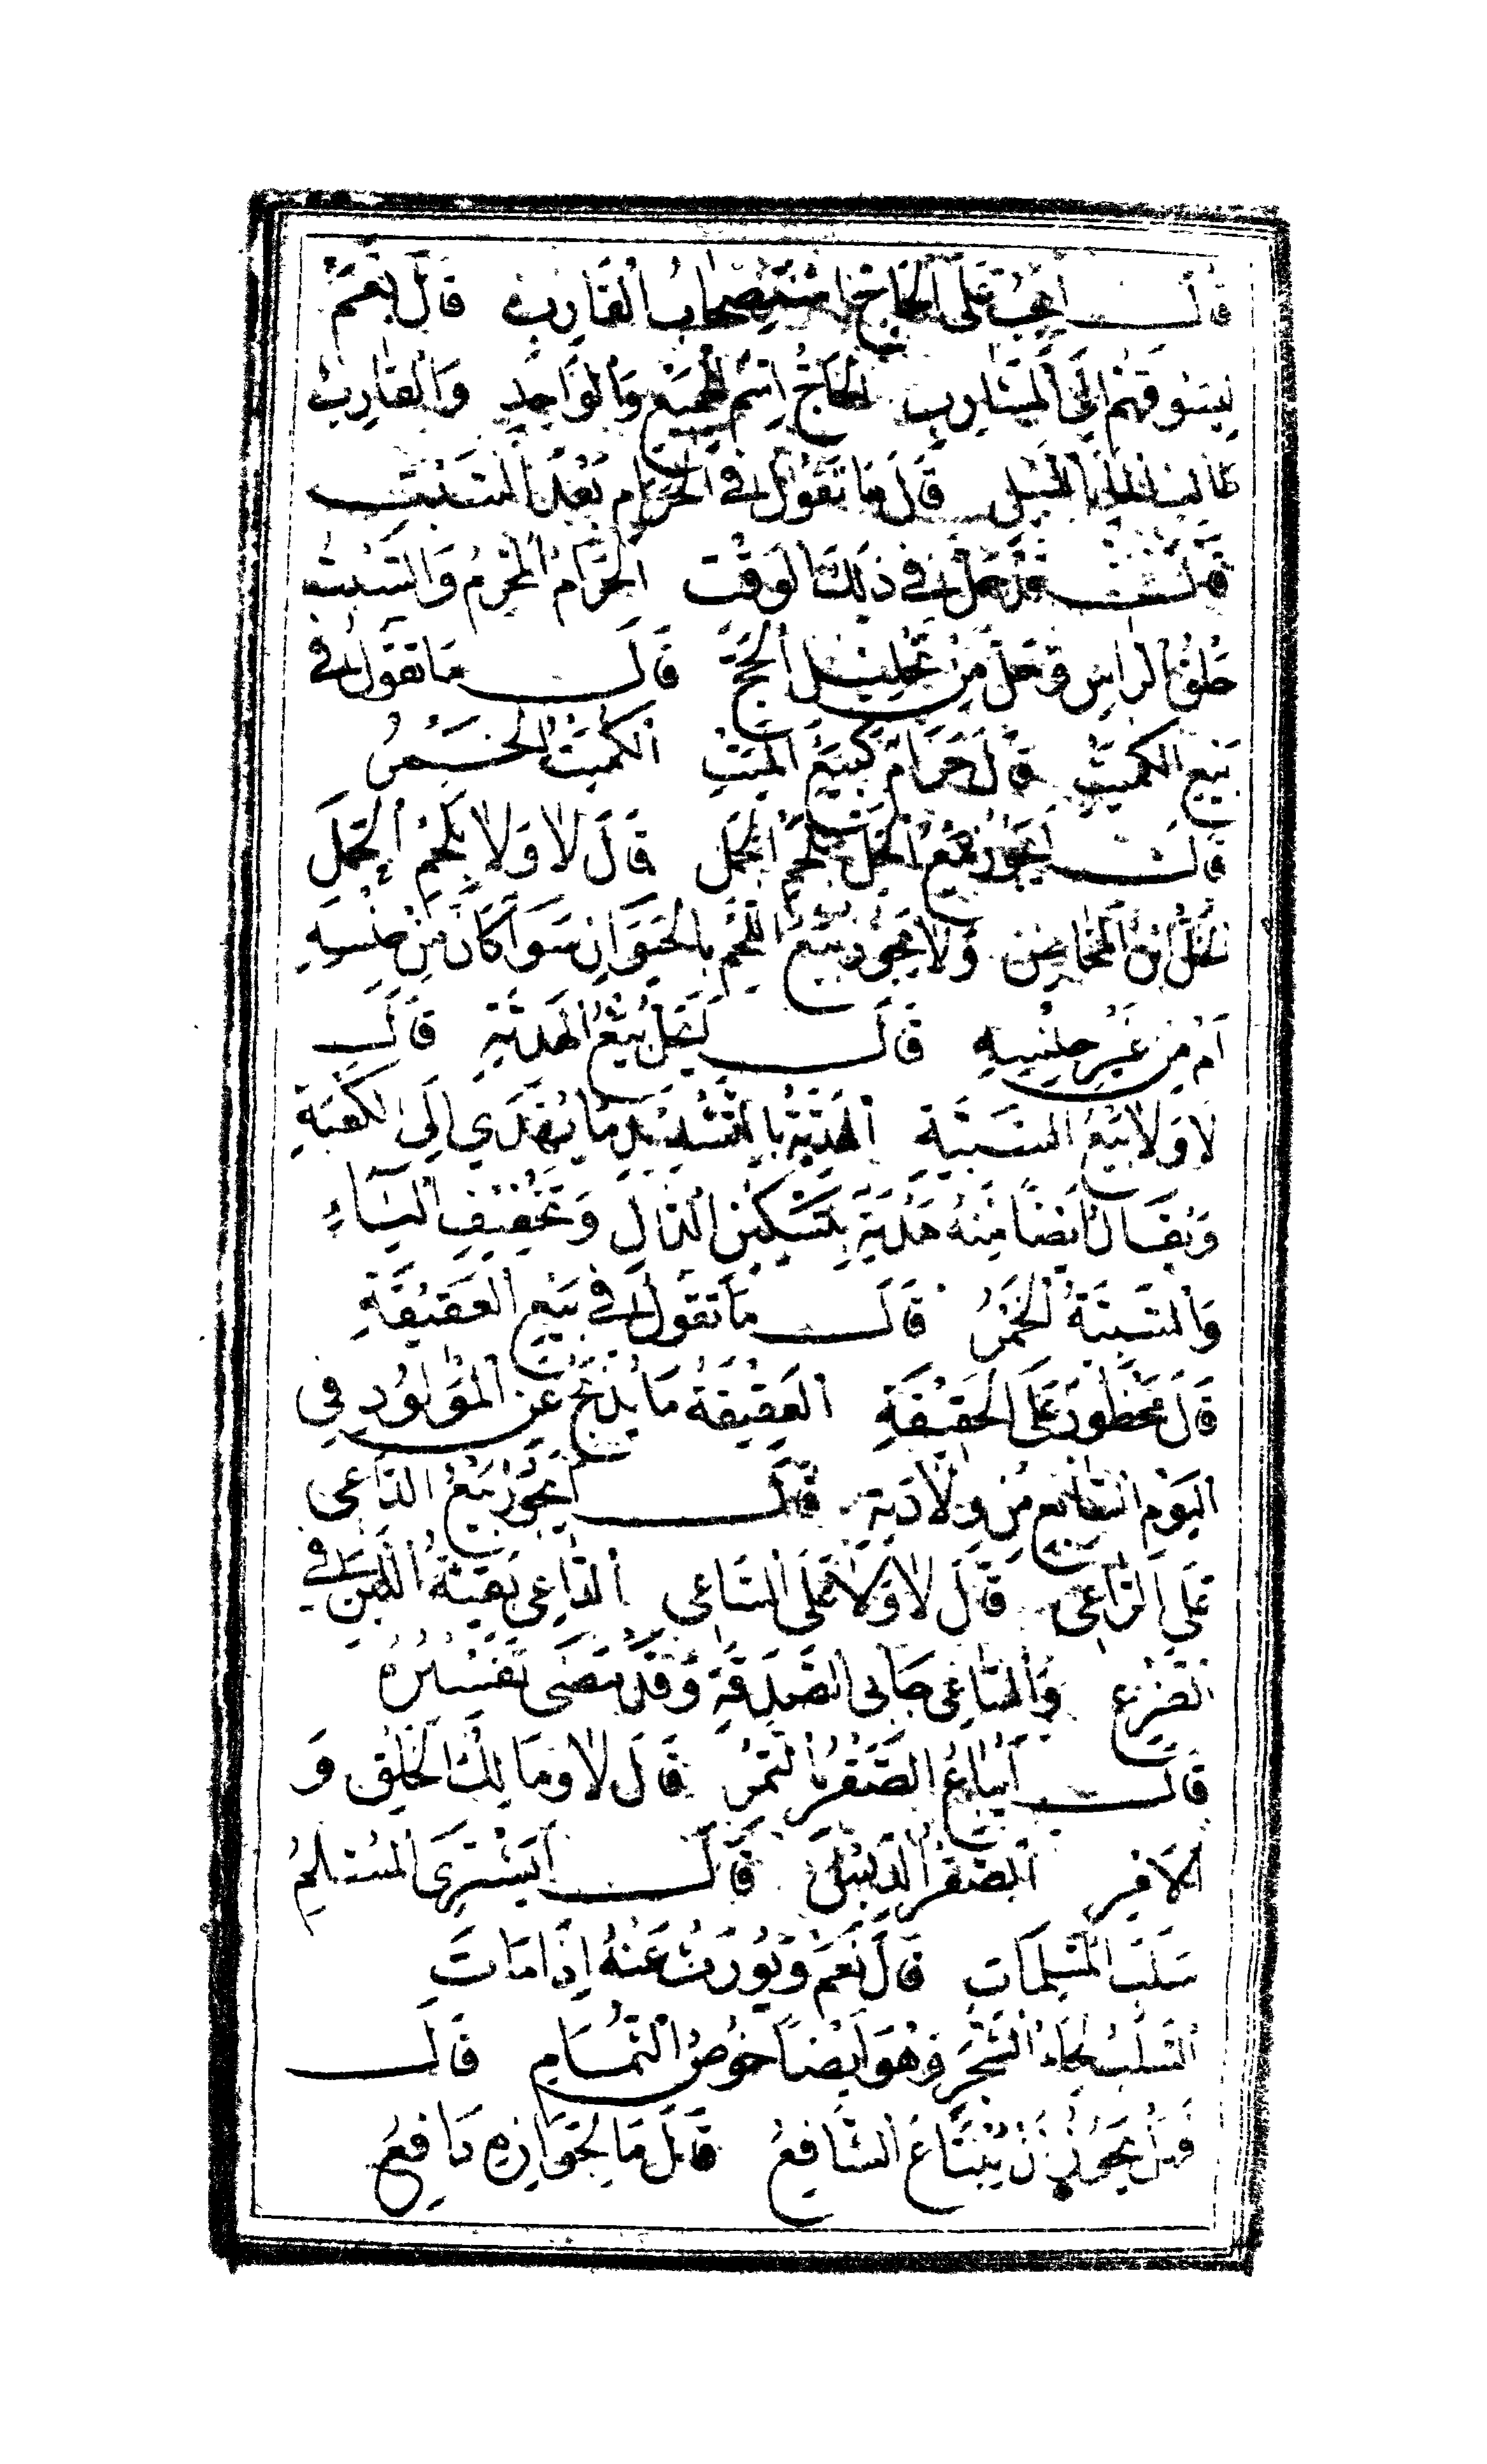 قال أيجب على الحاج استصحاب القارب قال نعم
ليسوقهم إلى المشارب الحاج اسم للجمع والواحد والقارب
طالب الماء بالليل قال ما تقول في الحرام بعد السبت
قال قد حل في ذلك الوقت الحرام المحرم والسبت
حلق الرأس وحل من تحليل الحج قال ما تقول في
بيع الكميت قال حرام كبيع الميت الكميت الخمر
قال أيجوز بيع الخل بلحم الجمل قال لا ولا بلحم الحمل
الخل ابن المخاض ولا يجوز بيع اللحم بالحيوان سوا كان من جنسه
أم من غير جنسه قال أيحل بيع الهدية قال
لا ولا بيع السبية الهدية بالتشديد ما يهدي إلى الكعبة
ويقال أيضا فيه هدية بتسكين الدال وتخفيف الياء
والسبية الخمر قال ما تقول في بيع العقيقة
قال محظور على الحقيقة العقيقة ما يذبح عن المولود في
اليوم السابع من ولادته قال أيجوز بيع الداعي
على الراعي قال لا ولا على الساعي الداعي بقية اللبن في
الضرع والساعي جابي الصدقة وقد مضى تفسيره
قال أيباع الصقر بالتمر قال لا ومالك الخلق و
الأمر الصقر الدبس قال أيشتري المسلم
سلب المسلمات قال نعم ويورث عنه إذا مات
السلب لحاء الشجر وهو أيضا خوص الثمام قال
فهل يجوز أن يبتاع الشافع قال ما لجوازه دافع